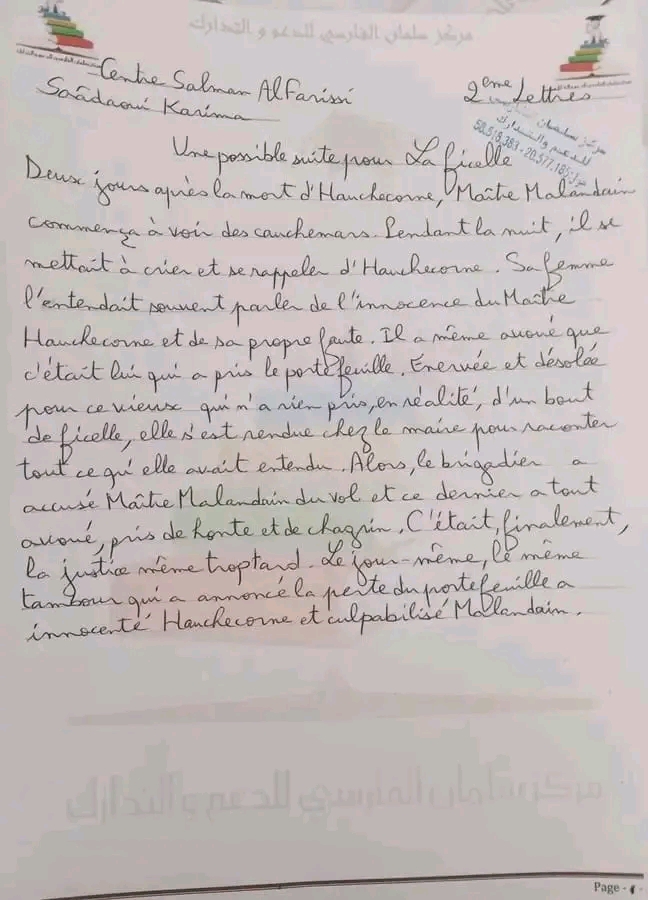 مركز سلمان الفارسي للدعم و التدارك
Centre Salman AlFarissi
2ème Lettres
Saâdaoui Karima
مركز سلمان
للدعم والتدارك
50.518.383 - 20.577.185
Une possible suite pour La ficelle
Deux jours après la mort d'Hauchecorne, Maître Malandain
commença à voir des cauchemars. Pendant la nuit, il se
mettait à crier et se rappeler d'Hauchecorne. Sa femme
l'entendait souvent parler de l'innocence du Maître
Hauchecorne et de sa propre faute. Il a même avoué que
c'était lui qui a pris le portefeuille. Enervée et désolée
pour ce vieux qui n'a rien pris, en réalité, d'un bout
de ficelle, elle s'est rendue chez le maire pour raconter
tout ce qu'elle avait entendu. Alors, le brigadier a
accusé Maître Malandain du vol et ce dernier a tout
avoué, pris de honte et de chagrin. C'était, finalement,
la justice même trop tard. Le jour-même, le même
tambour qui a annoncé la perte du portefeuille a
innocenté Hauchecorne et culpabilisé Malandain.
مركز سلمان الفارسي للدعم و التدارك
Page -